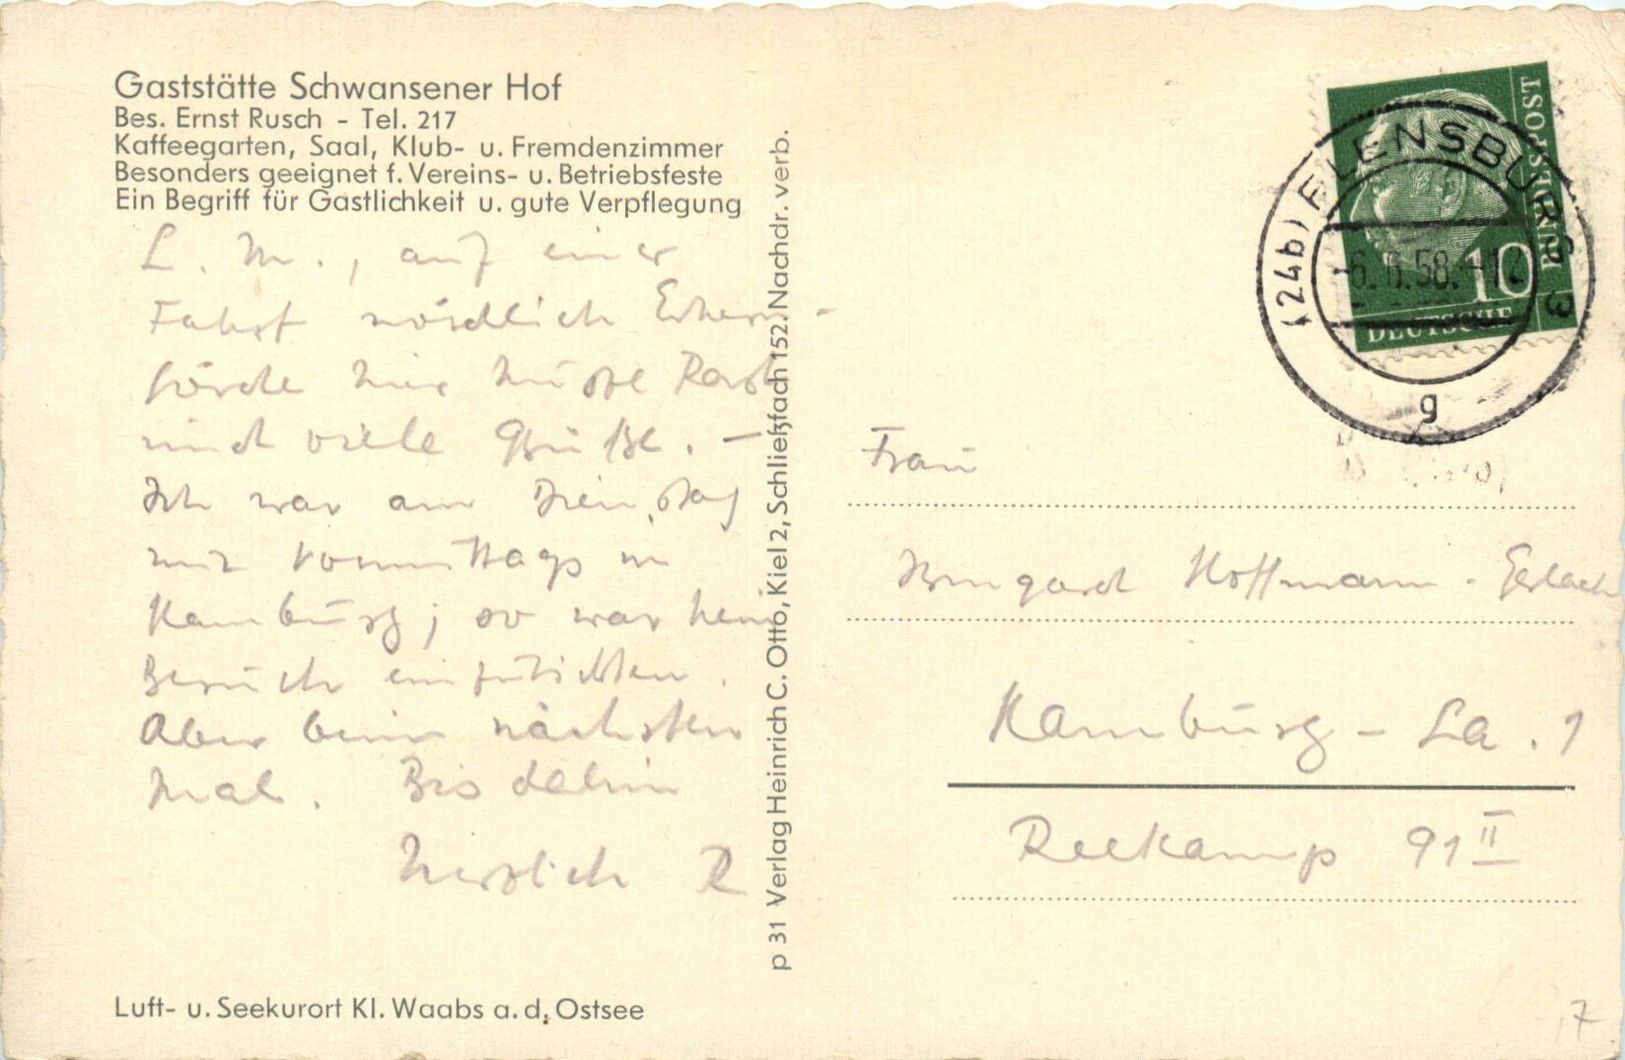 Gaststätte Schwansener Hof
Bes. Ernst Rusch - Tel. 217
Kaffeegarten, Saal, Klub- u. Fremdenzimmer
Besonders geeignet f. Vereins- u. Betriebsfeste
Ein Begriff für Gastlichkeit u. gute Verpflegung
L. M., auf einer
Fahrt nördlich Eckern-
förde hier kurze Rast
und viele Grüße. —
Ich war am Dienstag
nur vormittags in
Hamburg; so war kein
Besuch einzurichten.
Aber beim nächsten
Mal. Bis dahin
herzlich R
Luft- u. Seekurort Kl. Waabs a. d. Ostsee
p 31 Verlag Heinrich C. Otto, Kiel 2, Schließfach 152. Nachdr. verb.
DEUTSCHE BUNDESPOST
10
(24b) FLENSBURG 3
-6. 6. 58. -12
g
Frau
Irmgard Hoffmann - Gerlach
Hamburg - La. 1
Reekamp 91 II
7